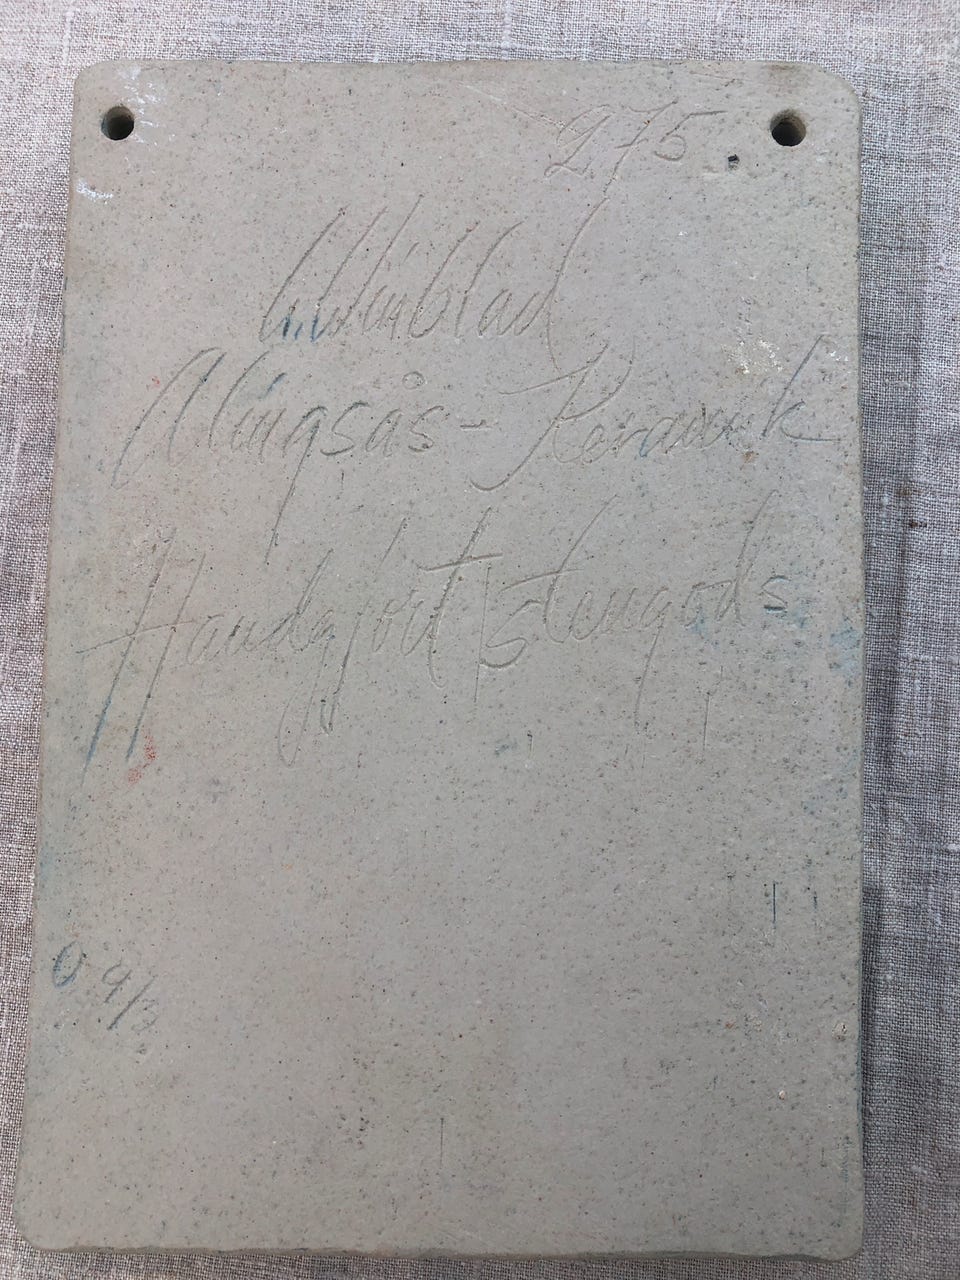 275.
U. Winblad
Alingsås-Keramik
Handgjort stengods